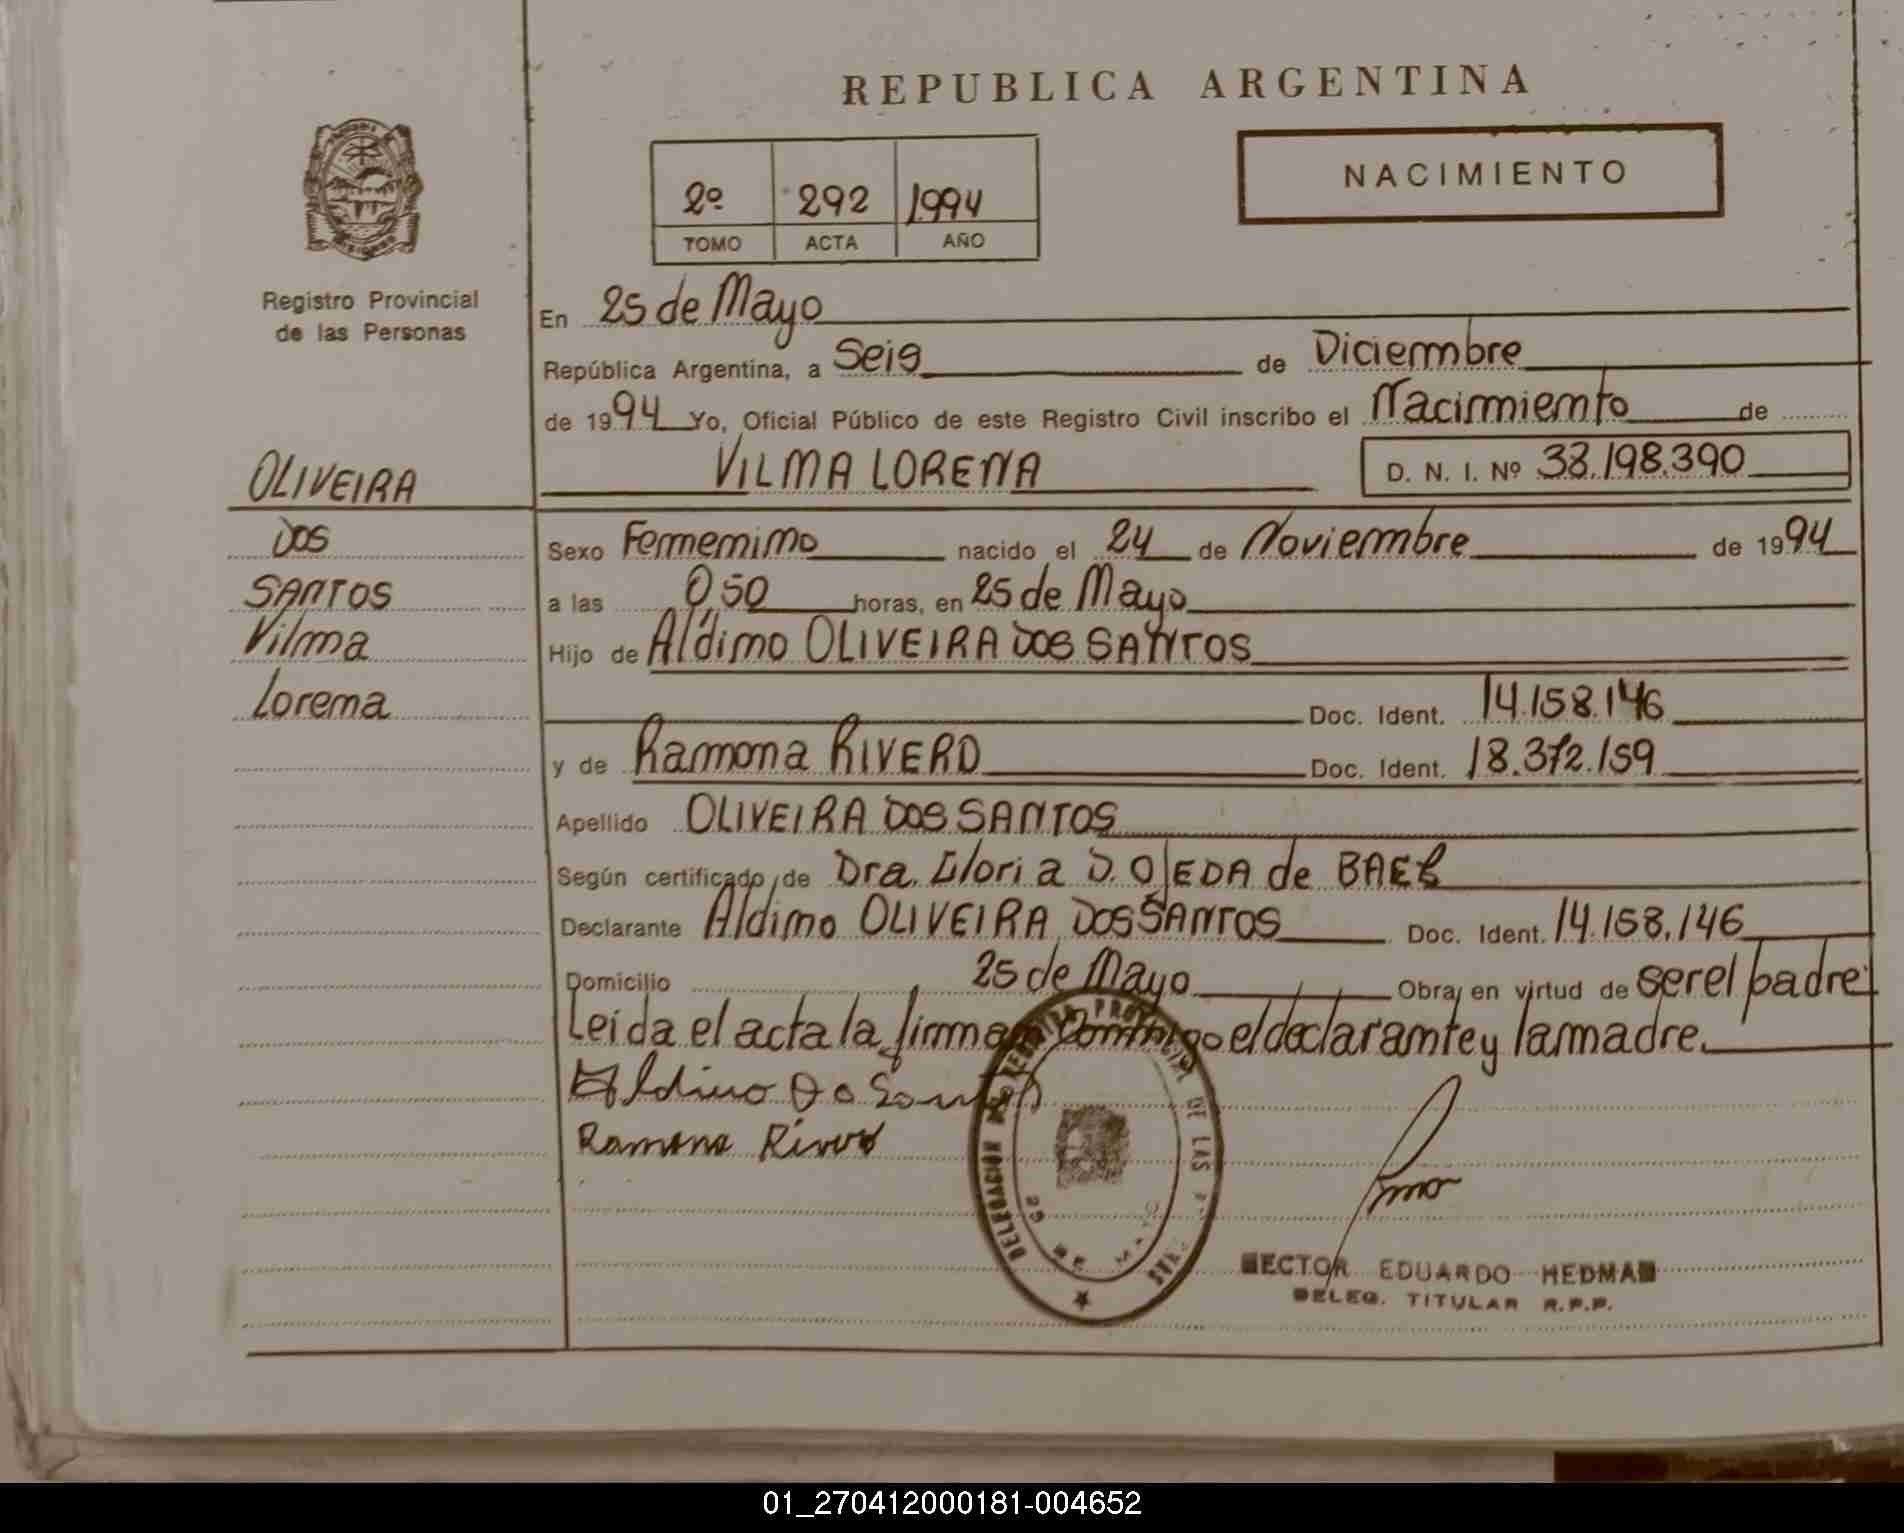 REPUBLICA ARGENTINA
NACIMIENTO
2º 292 1994
TOMO ACTA AÑO
Registro Provincial
de las Personas
En 25 de Mayo
República Argentina, a Seis de Diciembre
de 1994 Yo, Oficial Público de este Registro Civil inscribo el Nacimiento de
OLIVEIRA VILMA LORENA D. N. I. Nº 38.198.390
DOS Sexo Femenino nacido el 24 de Noviembre de 1994
SANTOS a las 0,50 horas, en 25 de Mayo
Vilma Hijo de Aldino OLIVEIRA DOS SANTOS
Lorena Doc. Ident. 14.158.146
y de Ramona RIVERO Doc. Ident. 18.372.159
Apellido OLIVEIRA DOS SANTOS
Según certificado de Dra. Gloria D. OJEDA de BAEZ
Declarante Aldino OLIVEIRA DOS SANTOS Doc. Ident. 14.158.146
Domicilio 25 de Mayo Obra en virtud de ser el padre
Leida el acta la firman conmigo el declarante y la madre.
Aldino Do Santos
Ramona Rivero
DELEGACIÓN DEL REGISTRO PROVINCIAL DE LAS
25 DE MAYO
HECTOR EDUARDO HEDMAN
DELEG. TITULAR R.P.P.
01_270412000181-004652